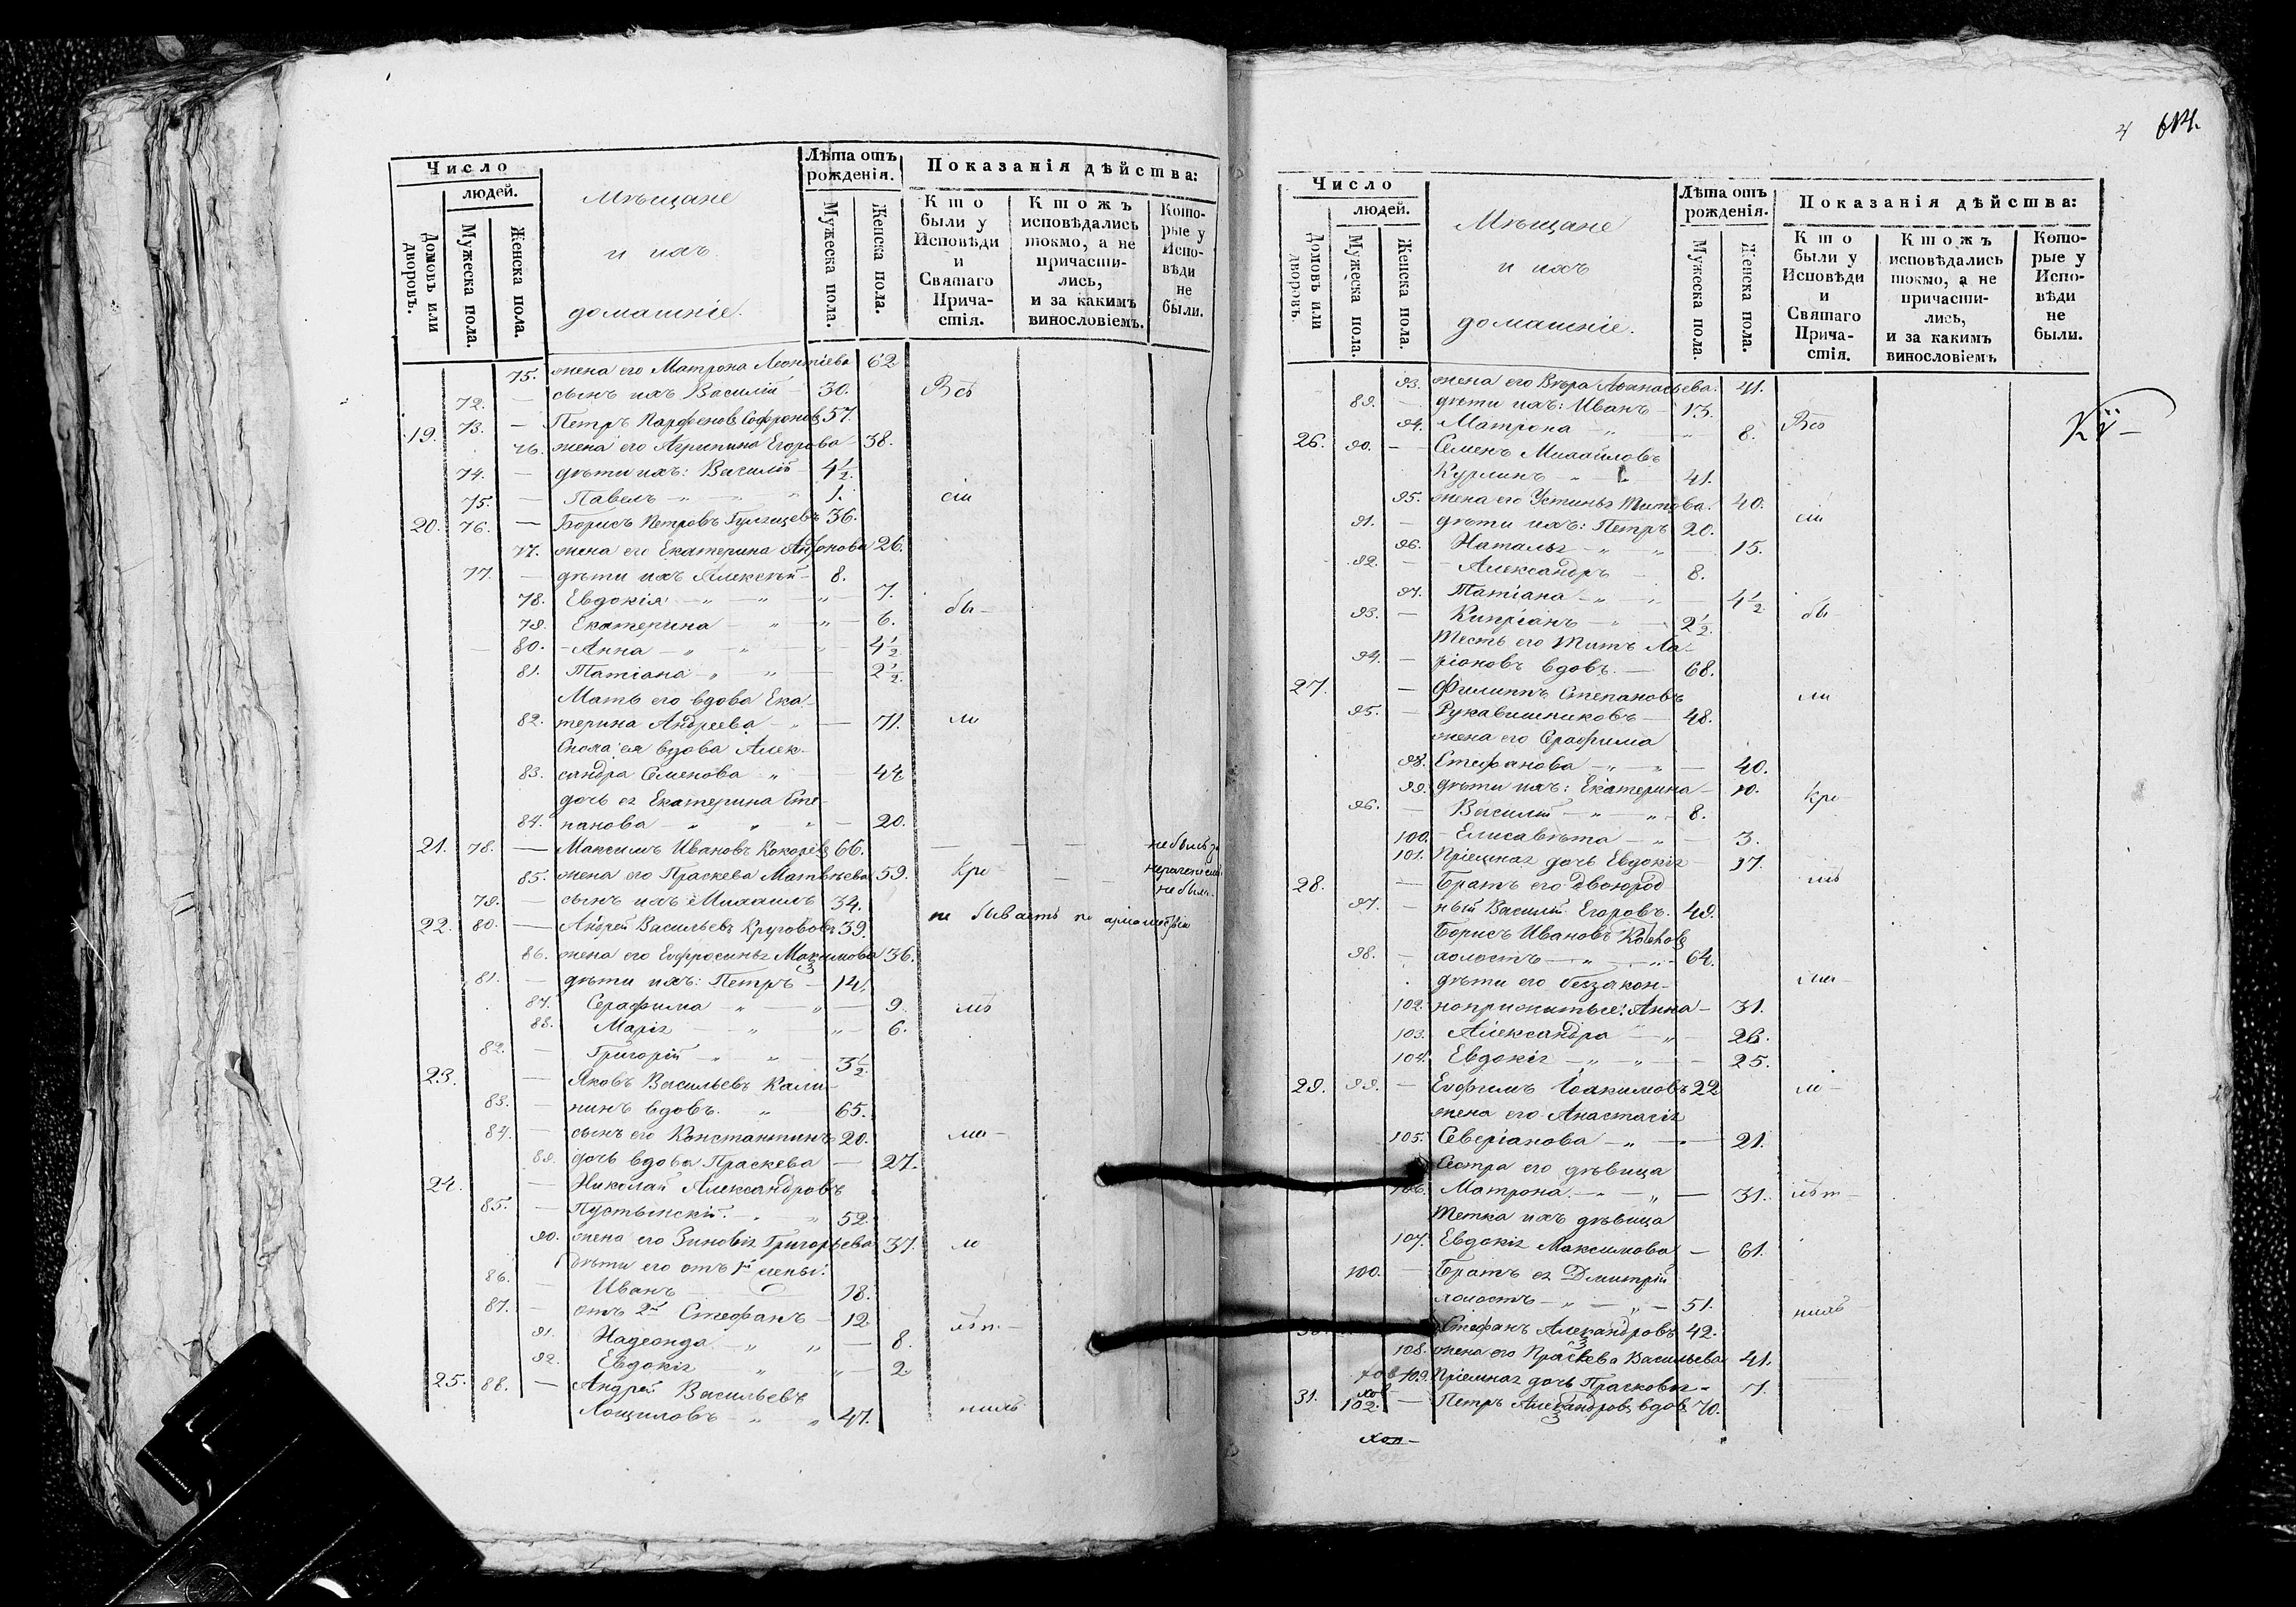 Число
людей.
Домовъ или дворовъ.
Мужеска пола.
Женска пола.
Мѣщане
и ихъ
домашніе.
Лѣта отъ рожденія.
Мужеска пола.
Женска пола.
Показанія дѣйства:
Кто были у Исповѣди и Святаго Причастія.
Ктожъ исповѣдались токмо, а не причастились, и за какимъ винословіемъ.
Которые у Исповѣди не были.
75. жена его Матрона Леонтіева 62
72. — сынъ ихъ Василій 30. Всѣ
19. 73. — Петръ Парфенов Софронов 57.
76. жена его Агрипина Егорова 38.
74. — дѣти ихъ: Василій 4½.
75. — Павелъ 1. сіи
20. 76. — Борисъ Петровъ 36.
77. жена его Екатерина 26.
77. — дѣти ихъ Алексѣй 8.
78. Евдокія 7.
79. Екатерина 6. бы-
80. Анна 4½
81. Татіана 2½.
Мать его вдова Ека-
82. терина Андреева 71. ли
Сноха ея вдова Алек-
83. сандра Семенова 44
дочь ея Екатерина Сте-
84. панова 20.
21. 78. — Максимъ Ивановъ 66. не былъ
85. жена его Праскева Матвѣева 59. Кро-
не была
79. — сынъ ихъ Михаилъ 34.
22. 80. — Андрей Васильевъ 39. не бываетъ по
86. жена его Евфросинья Максимова 36.
81. — дѣти ихъ: Петръ 14.
87. Серафима 9. мѣ
88. Марія 6.
82. — Григорій 3½.
23. — Яковъ Васильевъ Кали-
83. — нинъ вдовъ. 65.
84. — сынъ его Константинъ 20. ма-
89. дочь вдова Праскева — 27.
24. — Николай Александровъ
85. — Пустынскій. 52.
90. жена его Зиновія Григорьева 37. ло
Дѣти его отъ 1й жены:
86. — Иванъ 18.
87. — отъ 2й Стефанъ 12
91. Надеонда 8. лѣт-
92. Евдокія 2
25. 88. — Андрей Васильевъ
Лощиловъ 47. нихъ
4 614.
Число
людей.
Домовъ или дворовъ.
Мужеска пола.
Женска пола.
Мѣщане
и ихъ
домашніе.
Лѣта отъ рожденія.
Мужеска пола.
Женска пола.
Показанія дѣйства:
Кто были у Исповѣди и Святаго Причастія.
Ктожъ исповѣдались токмо, а не причастились, и за какимъ винословіемъ
Которые у Исповѣди не были.
93. жена его Вѣра Афанасьева. 41.
89. — дѣти ихъ: Иванъ 13.
94. Матрона 8. Всѣ
26. 90. — Семенъ Михайловъ
Курлинъ 41.
95. жена его Устинья Титова. 40.
91. — дѣти ихъ: Петръ 20. сіи
96. Наталья 15.
92. — Александръ 8.
97. Татіана 4½
93. — Кипріанъ 2½. бы
Тесть его Титъ Ла-
94. — ріоновъ вдовъ. 68.
27. — Филиппъ Степановъ ли
95. — Рукавишниковъ 48.
жена его Серафима
98. Стефанова 40.
99. дѣти ихъ: Екатерина 10. Кро-
96. — Василій 8.
100. Елисавѣта 3.
101. Пріемная дочь Евдокія 17.
28. — Братъ его двоюрод- мѣ
97. — ный Василій Егоровъ. 49.
Борисъ Ивановъ
98. — холостъ 64.
дѣти его беззакон- ма-
102.ноприжитые: Анна 31.
103. Александра 26.
104. Евдокія 25.
29. 99. — Евфимъ Іоакимовъ 22 ло-
жена его Анастасія
105. Северіанова 21.
Сестра его дѣвица
106. Матрона 31. лѣт-
Тетка ихъ дѣвица
107. Евдокія Максимова — 61.
100. — Братъ ея Дмитрій
холостъ 51. нихъ
Стефанъ Александровъ 42.
108. жена его Праскева Васильева 41.
109. Пріемная дочь Прасковья 7.
31. 102. — Петръ Александров вдов. 70.